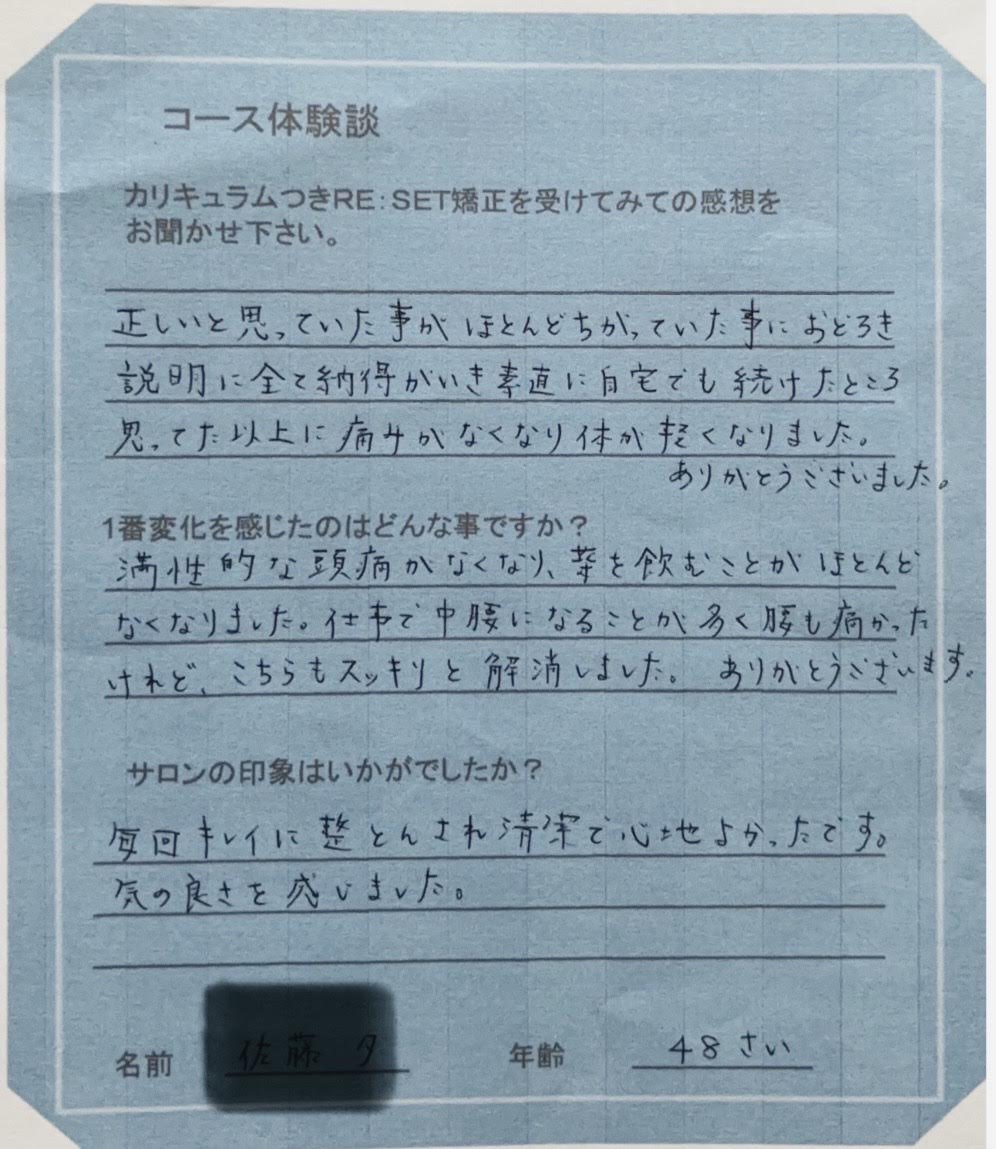 コース体験談
カリキュラムつきRE:SET矯正を受けてみての感想を
お聞かせ下さい。
正しいと思っていた事がほとんどちがっていた事におどろき
説明に全て納得がいき素直に自宅でも続けたところ
思ってた以上に痛みがなくなり体が軽くなりました。
ありがとうございました。
1番変化を感じたのはどんな事ですか?
満性的な頭痛がなくなり、薬を飲むことがほとんど
なくなりました。仕事で中腰になることが多く腰も痛かった
けれど、こちらもスッキリと解消しました。 ありがとうございます。
サロンの印象はいかがでしたか?
毎回キレイに整とんされ清潔で心地よかったです。
気の良さを感じました。
名前 年齢 48さい